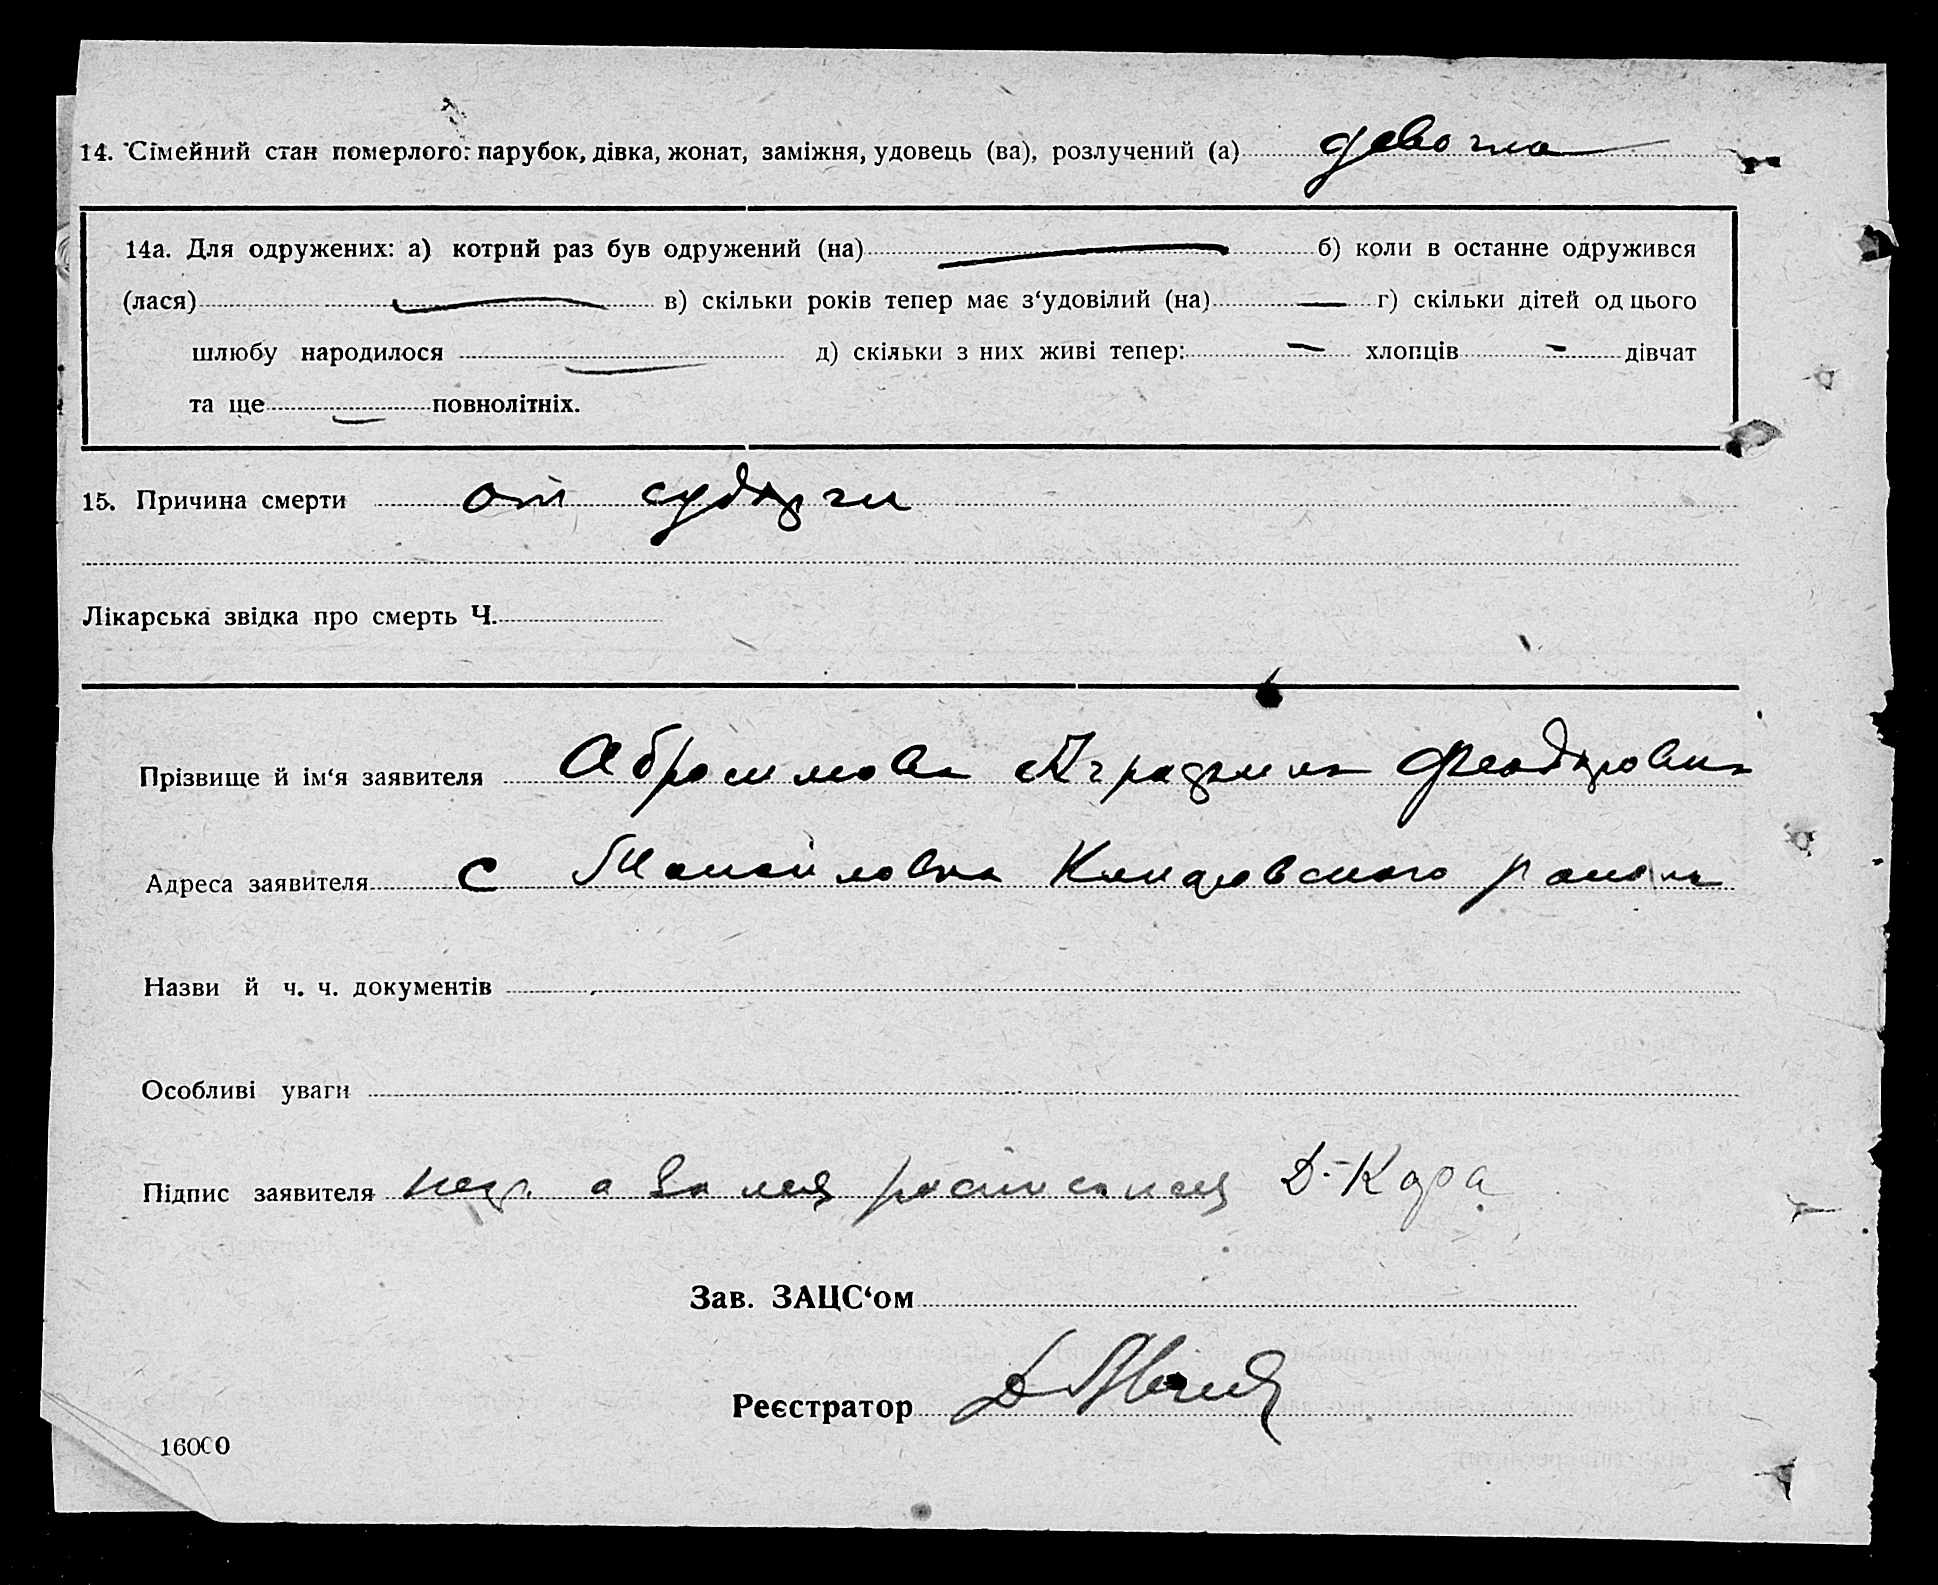 14. Сімейний стан померлого: парубок, дівка, жонат, заміжня, удовець (ва), розлучений (а) девочка
14а. Для одружених: а) котрий раз був одружений (на) — б) коли в останне одружився
(лася) — в) скільки років тепер має з‘удовілий (на) — г) скільки дітей од цього
шлюбу народилося — д) скільки з них живі тепер: — хлопців - дівчат
та ще — повнолітніх.
15. Причина смерти от судорги
Лікарська звідка про смерть Ч.
Прізвище й ім‘я заявителя Абросимова Феодоровна
Адреса заявителя с района
Назви й ч. ч. документів
Особливі уваги
Підпис заявителя а за нея росписался Д-Кара
Зав. ЗАЦС‘ом
Реєстратор
16000